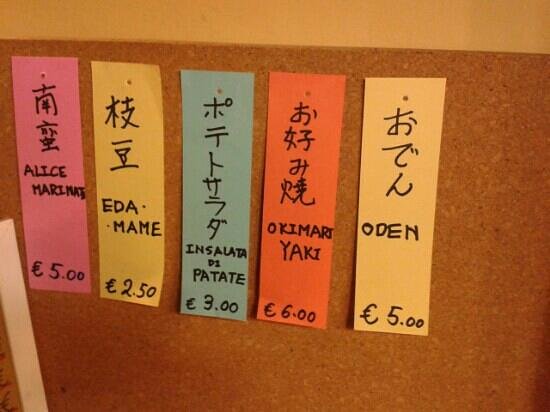 南蛮
ALICE
MARINATE
€ 5.00
枝豆
EDA-
-MAME
€ 2.50
ポテトサラダ
INSALATA
DI
PATATE
€ 3.00
お好み焼
OKIMARI
YAKI
€ 6.00
おでん
ODEN
€ 5.00